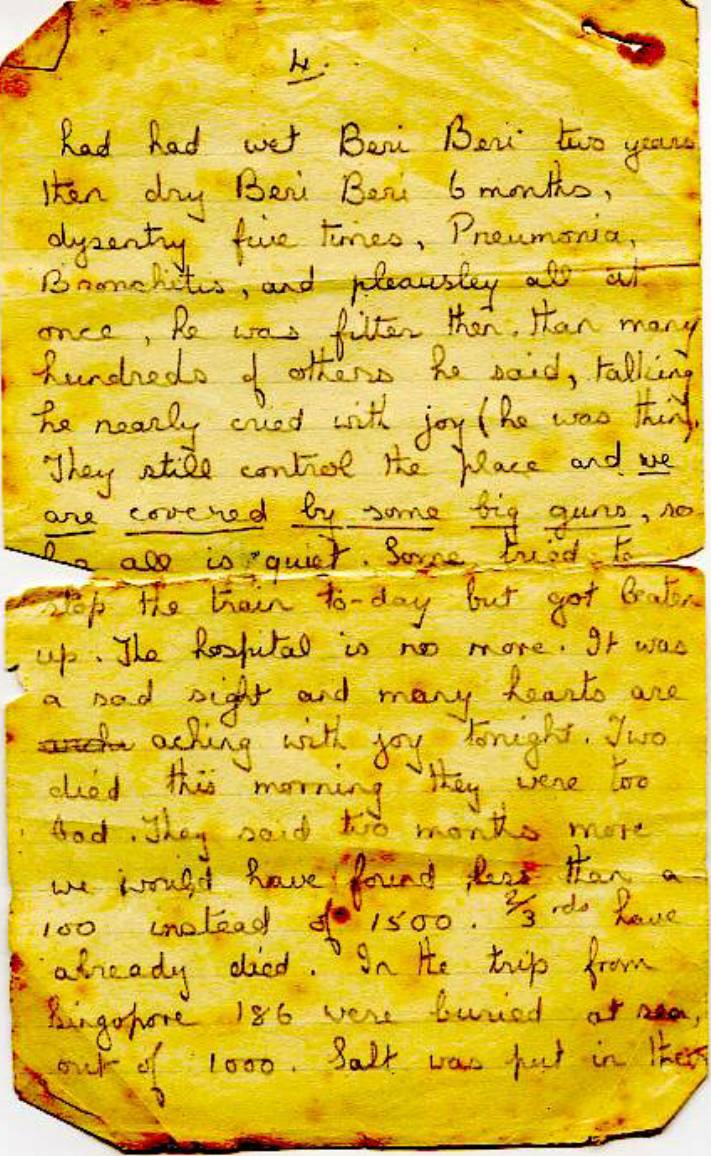 4.
had had wet Beri Beri two years
then dry Beri Beri 6 months,
dysentry five times, Pneumonia,
Bronchitis, and pleausley all at
once, he was fitter then. than many
hundreds of others he said, talking
he nearly cried with joy (he was thin).
They still control the place and we
are covered by some big guns, so
all is quiet. Some tried to
stop the train to-day but got beaten
up. The hospital is no more. It was
a sad sight and many hearts are
aching with joy tonight. Two
died this morning they were too
bad. They said two months more
we would have found less than a
100 instead of 1500. 2/3 rds have
already died. In the trip from
Singopore 186 were buried at sea,
out of 1000. Salt was put in their